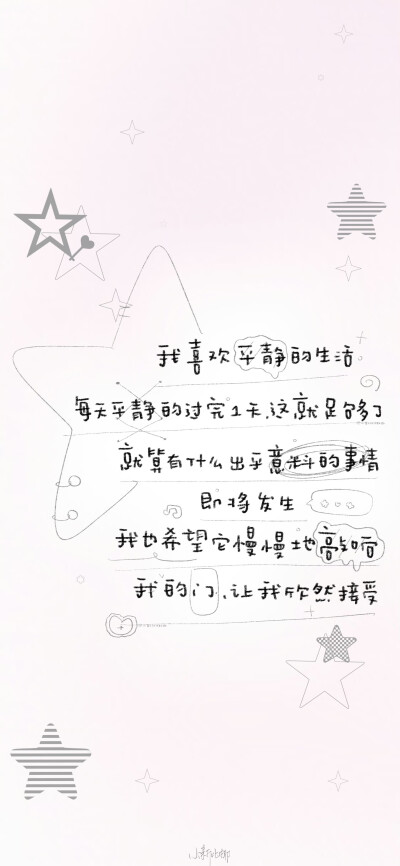 我喜欢平静的生活
每天平静的过完1天.这就足够了
就算有什么出乎意料的事情
即将发生
我也希望它慢慢地敲响
我的门.让我欣然接受